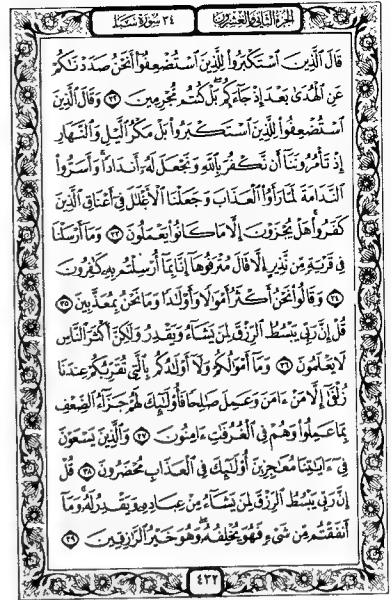 الجزء الثاني والعشرون
٣٤ سورة سبإ
قَالَ ٱلَّذِينَ ٱسۡتَكۡبَرُواْ لِلَّذِينَ ٱسۡتُضۡعِفُوٓاْ أَنَحۡنُ صَدَدۡنَٰكُمۡ
عَنِ ٱلۡهُدَىٰ بَعۡدَ إِذۡ جَآءَكُمۖ بَلۡ كُنتُم مُّجۡرِمِينَ ٣٢ وَقَالَ ٱلَّذِينَ
ٱسۡتُضۡعِفُواْ لِلَّذِينَ ٱسۡتَكۡبَرُواْ بَلۡ مَكۡرُ ٱلَّيۡلِ وَٱلنَّهَارِ
إِذۡ تَأۡمُرُونَنَآ أَن نَّكۡفُرَ بِٱللَّهِ وَنَجۡعَلَ لَهُۥٓ أَندَادٗاۚ وَأَسَرُّواْ
ٱلنَّدَامَةَ لَمَّا رَأَوُاْ ٱلۡعَذَابَۚ وَجَعَلۡنَا ٱلۡأَغۡلَٰلَ فِيٓ أَعۡنَاقِ ٱلَّذِينَ
كَفَرُواْۖ هَلۡ يُجۡزَوۡنَ إِلَّا مَا كَانُواْ يَعۡمَلُونَ ٣٣ وَمَآ أَرۡسَلۡنَا
فِي قَرۡيَةٖ مِّن نَّذِيرٍ إِلَّا قَالَ مُتۡرَفُوهَآ إِنَّا بِمَآ أُرۡسِلۡتُم بِهِۦ كَٰفِرُونَ
٣٤ وَقَالُواْ نَحۡنُ أَكۡثَرُ أَمۡوَٰلٗا وَأَوۡلَٰدٗا وَمَا نَحۡنُ بِمُعَذَّبِينَ ٣٥
قُلۡ إِنَّ رَبِّي يَبۡسُطُ ٱلرِّزۡقَ لِمَن يَشَآءُ وَيَقۡدِرُ وَلَٰكِنَّ أَكۡثَرَ ٱلنَّاسِ
لَا يَعۡلَمُونَ ٣٦ وَمَآ أَمۡوَٰلُكُمۡ وَلَآ أَوۡلَٰدُكُم بِٱلَّتِي تُقَرِّبُكُمۡ عِندَنَا
زُلۡفَىٰٓ إِلَّا مَنۡ ءَامَنَ وَعَمِلَ صَٰلِحٗا فَأُوْلَٰٓئِكَ لَهُمۡ جَزَآءُ ٱلضِّعۡفِ
بِمَا عَمِلُواْ وَهُمۡ فِي ٱلۡغُرُفَٰتِ ءَامِنُونَ ٣٧ وَٱلَّذِينَ يَسۡعَوۡنَ
فِيٓ ءَايَٰتِنَا مُعَٰجِزِينَ أُوْلَٰٓئِكَ فِي ٱلۡعَذَابِ مُحۡضَرُونَ ٣٨ قُلۡ
إِنَّ رَبِّي يَبۡسُطُ ٱلرِّزۡقَ لِمَن يَشَآءُ مِنۡ عِبَادِهِۦ وَيَقۡدِرُ لَهُۥۚ وَمَآ
أَنفَقۡتُم مِّن شَيۡءٖ فَهُوَ يُخۡلِفُهُۥۖ وَهُوَ خَيۡرُ ٱلرَّٰزِقِينَ ٣٩
٤٣٢